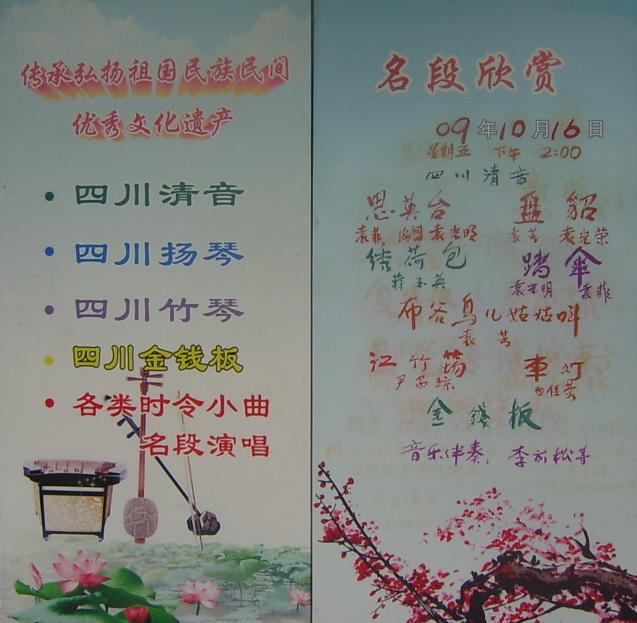 传承弘扬祖国民族民间
优秀文化遗产
• 四川清音
• 四川扬琴
• 四川竹琴
• 四川金钱板
• 各类时令小曲
名段演唱
名段欣赏
09年10月16日
星期五 下午 2:00
四川清音
思英台 貂
袁菲
荷包 踏伞
玉英 袁光明 袁菲
布谷鸟儿姑姑叫
袁芳
江竹筠 车灯
金錢板
音乐伴奏:李 松等